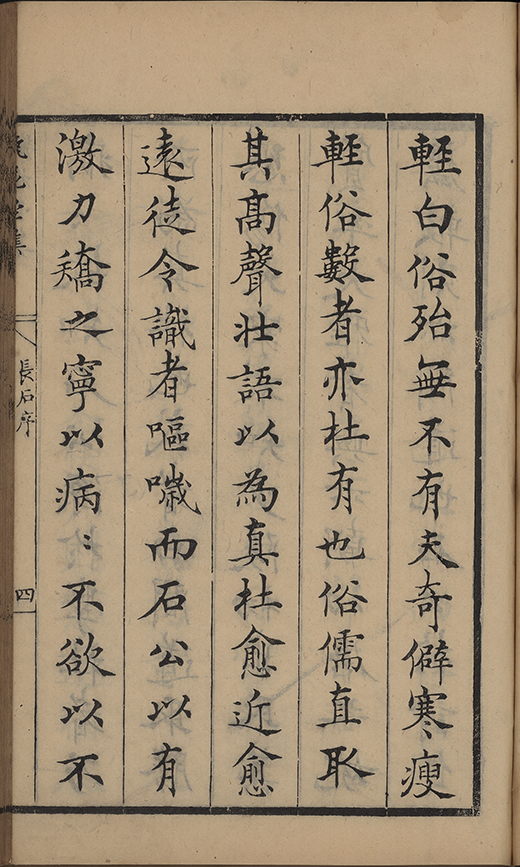 輕白俗殆無不有夫奇僻寒瘦
輕俗數者亦杜有也俗儒直取
其高聲壯語以為真杜愈近愈
遠徒令識者嘔噦而石公以有
激力矯之寧以病〻不欲以不
長石序
四